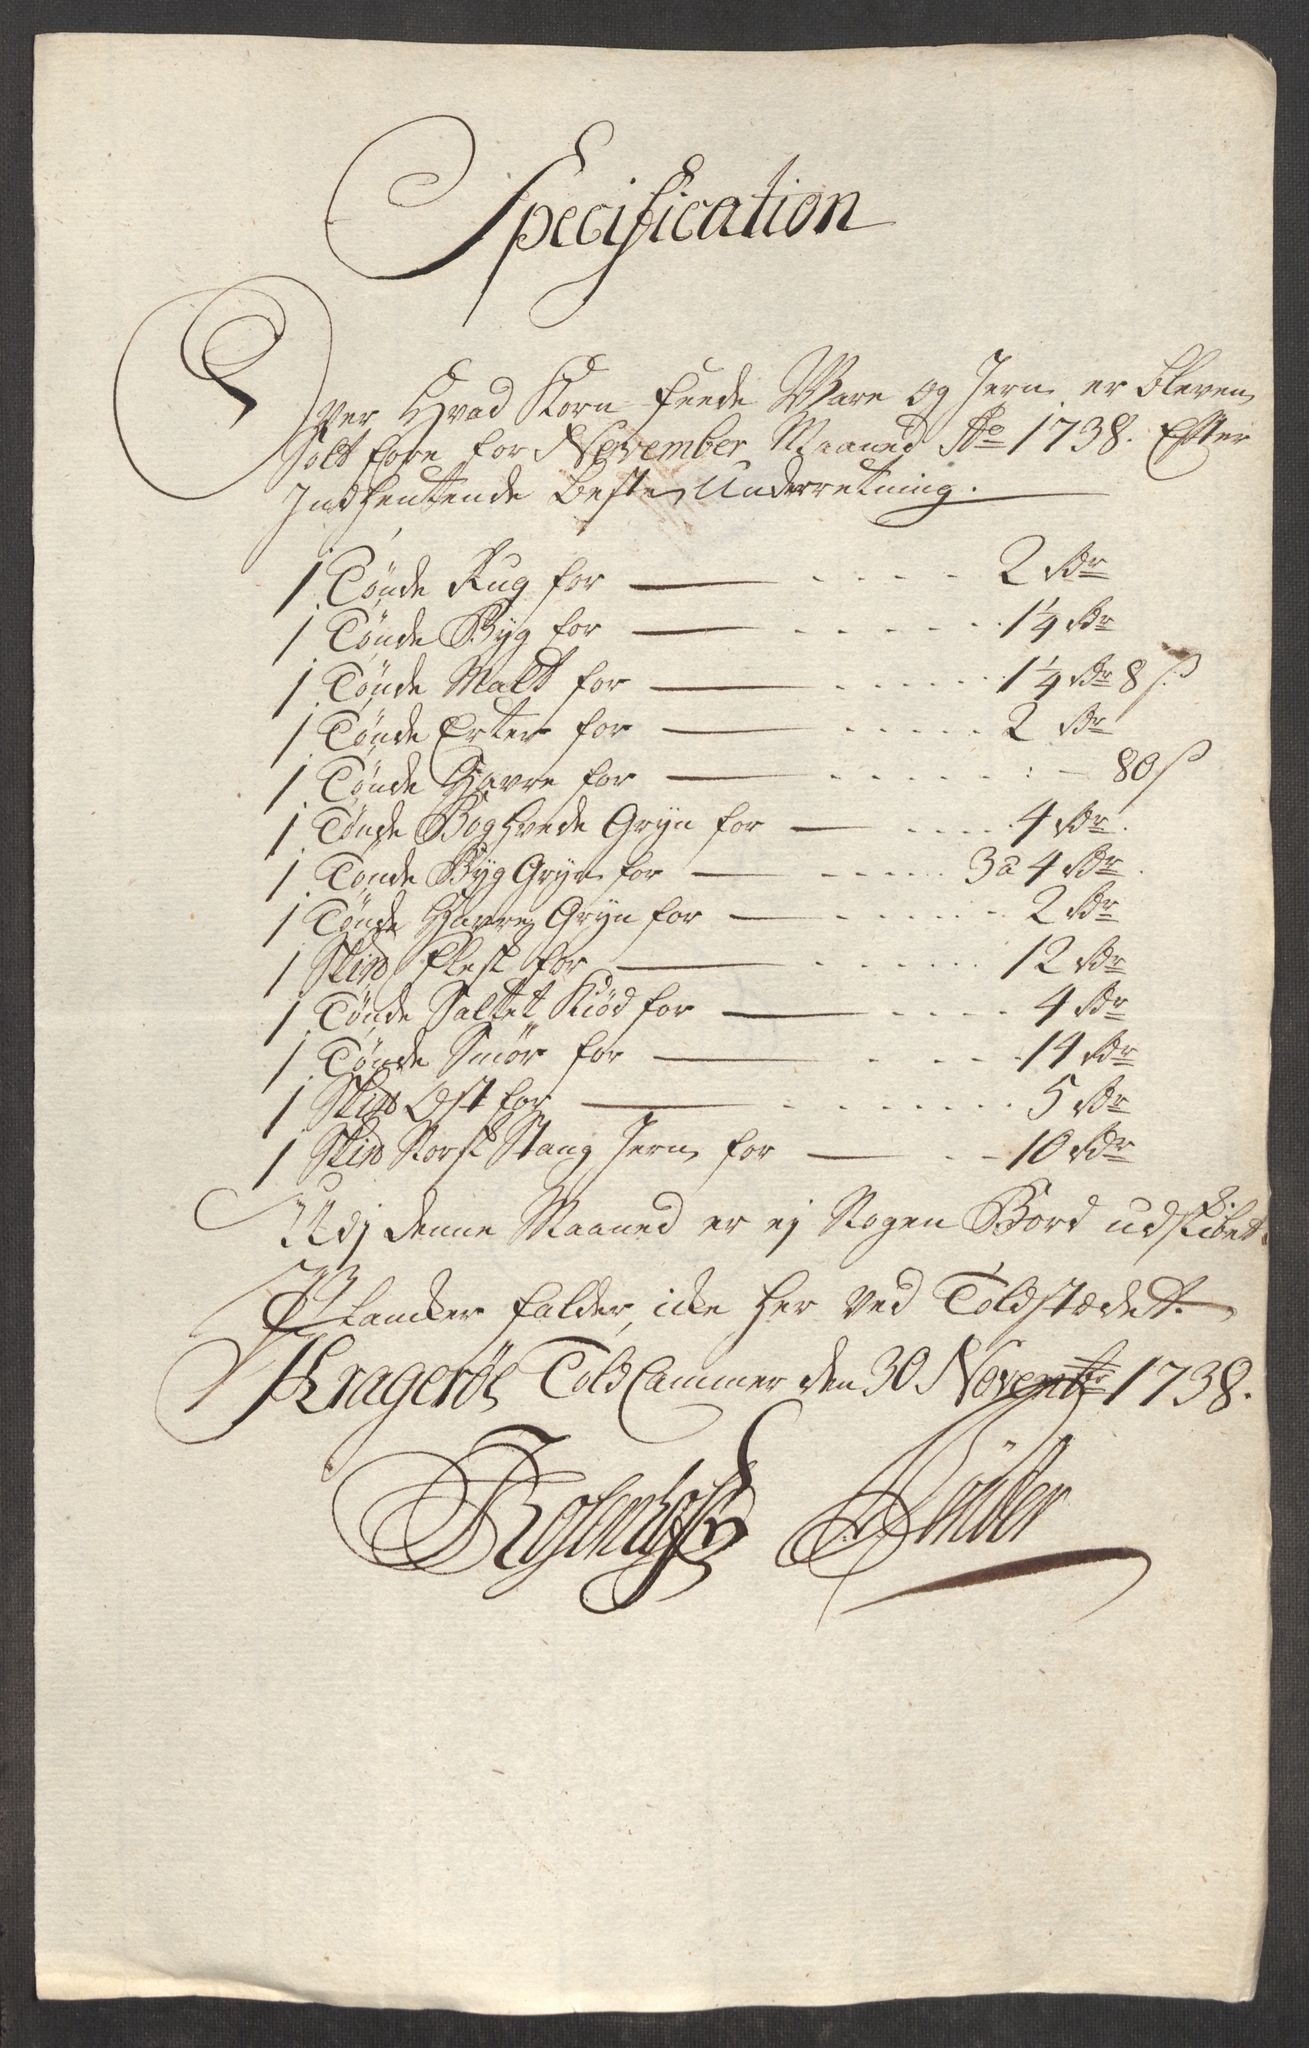 Specification
Over Hvad Korn Feede Ware og Jern er bleven
Solt fore for November Maaned Ao 1738. Efter
Indhentende beste Underretning.
1 Tønde Rug for — 2 Rdr
1 Tønde Byg for — 1 1/4 Rdr
1 Tønde Malt for — 1 1/4 Rdr 8 s
1 Tønde Erter for — 2 Rdr
1 Tønde Havre for — 80 s
1 Tønde Boghvede Gryn for — 4 Rdr.
1 Tønde Byg Gryn for — 3 a 4 Rdr.
1 Tønde Havre Gryn for — 2 Rdr
1 Skind Flesk for — 12 Rdr
1 Tønde Saltet Kiød for — 4 Rdr
1 Tønde Smør for — 14 Rdr
1 Skind Ost for — 5 Rdr
1 Skind Norsk Stang Jern for — 10 Rdr
Udj denne Maaned er ej Nogen Bord udskibet.
Plancker falder icke her ved Toldstædet.
Kragerøe Told Cammer den 30 Novembr 1738.